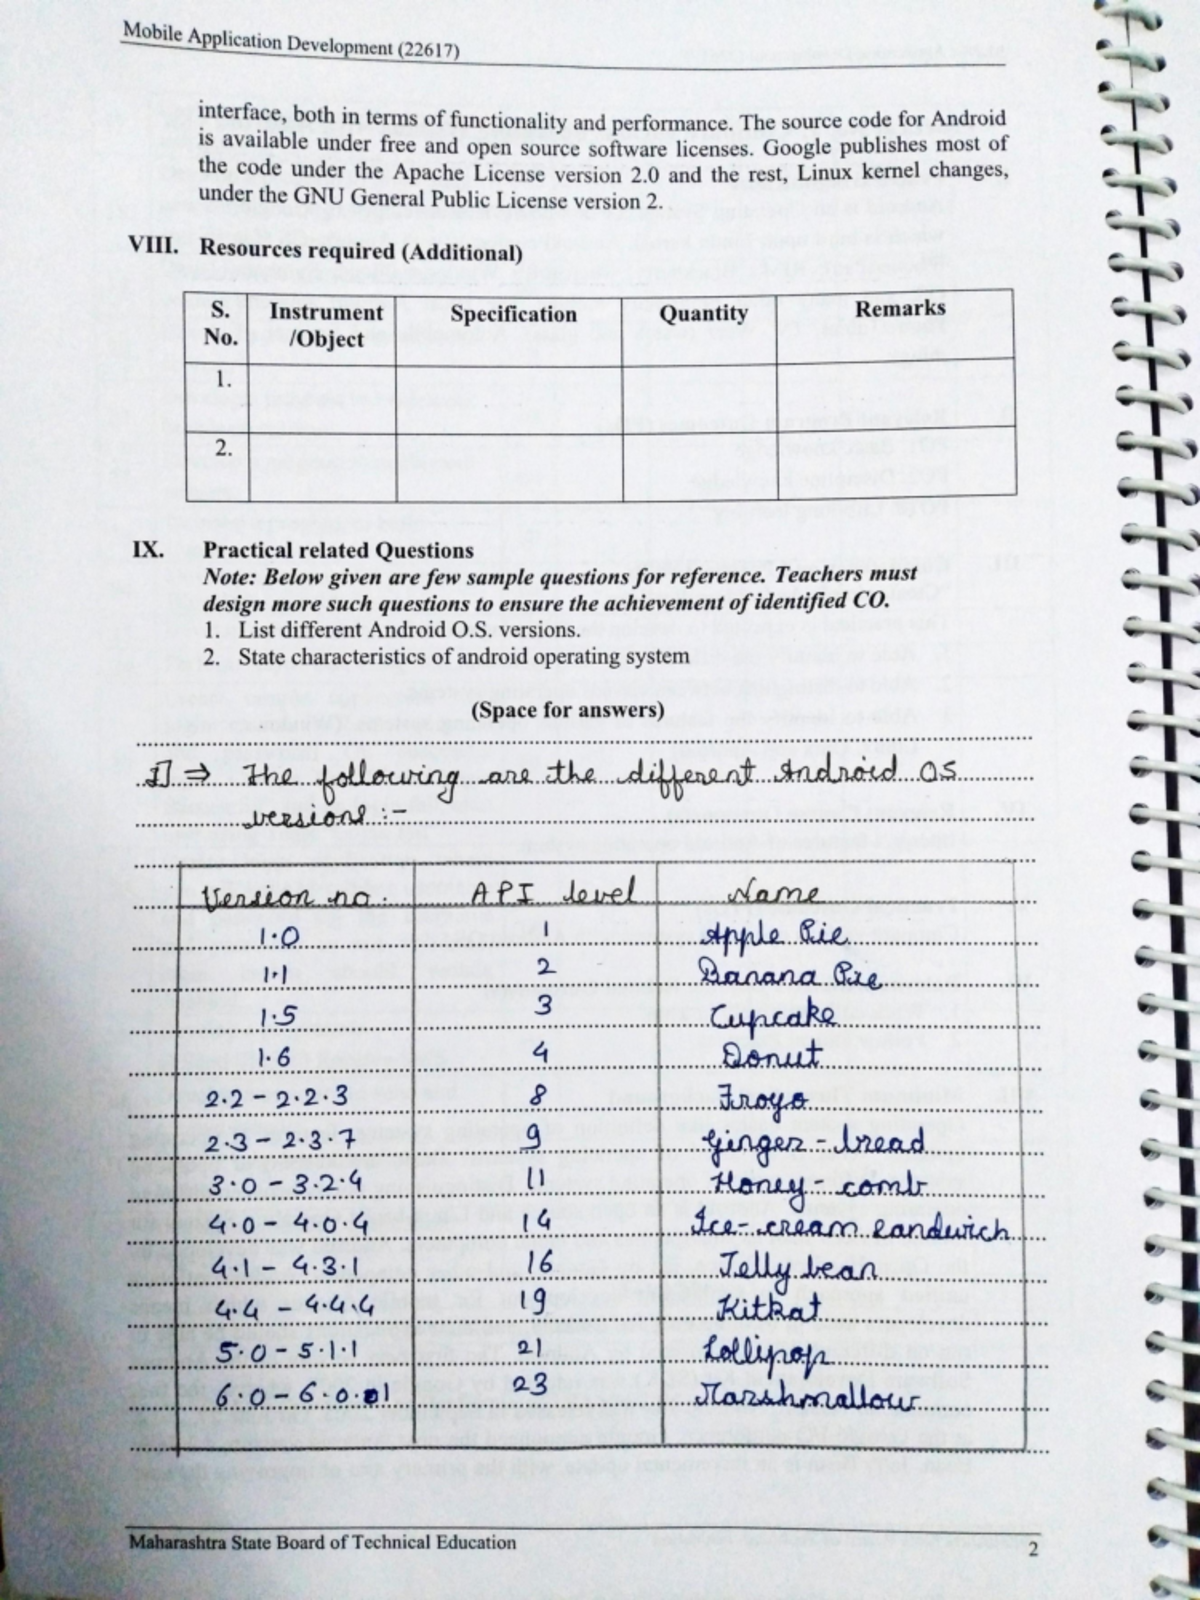 Mobile Application Development (22617)
interface, both in terms of functionality and performance. The source code for Android
is available under free and open source software licenses. Google publishes most of
the code under the Apache License version 2.0 and the rest, Linux kernel changes,
under the GNU General Public License version 2.
VIII. Resources required (Additional)
S. No. Instrument /Object Specification Quantity Remarks
1.
2.
IX. Practical related Questions
Note: Below given are few sample questions for reference. Teachers must
design more such questions to ensure the achievement of identified CO.
1. List different Android O.S. versions.
2. State characteristics of android operating system
(Space for answers)
1] ⇒ The following are the different Android OS
versions :-
Version no. API level Name
1.0 1 Apple Pie
1.1 2 Banana Pie
1.5 3 Cupcake
1.6 4 Donut
2.2 - 2.2.3 8 Froyo
2.3 - 2.3.7 9 Ginger - bread
3.0 - 3.2.4 11 Honey - comb
4.0 - 4.0.4 14 Ice - cream sandwich
4.1 - 4.3.1 16 Jelly bean
4.4 - 4.4.4 19 Kitkat
5.0 - 5.1.1 21 Lollipop
6.0 - 6.0.1 23 Marshmallow
Maharashtra State Board of Technical Education 2